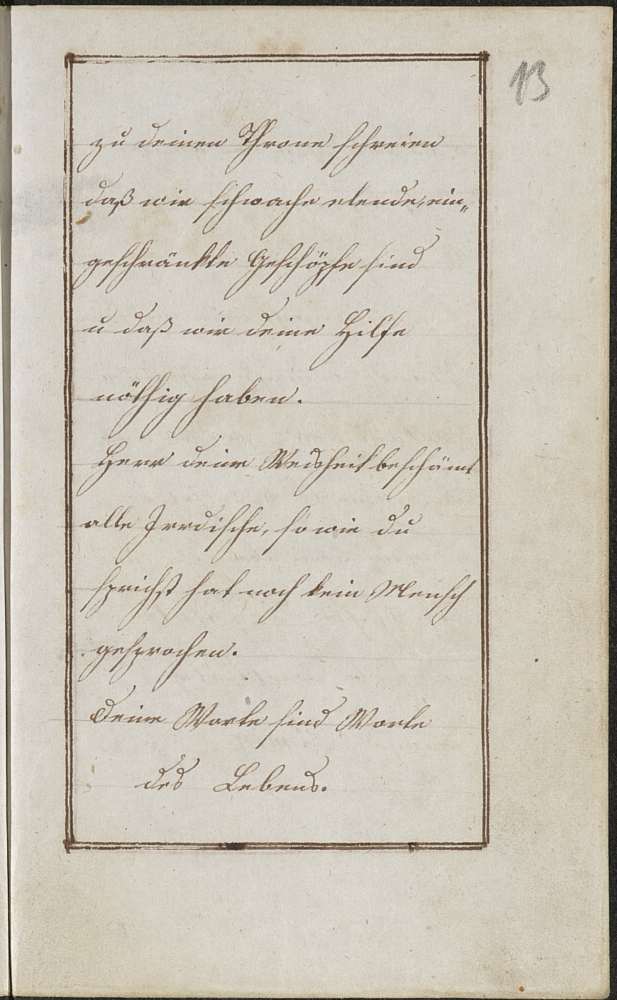 13
zu deinen Throne schreien
daß wir schwache elende, ein„
geschränkte Geschöpfe sind
u daß wir deine Hilfe
nöthig haben.
Herr deine Weisheit beschämt
alle Irrdische, so wie du
sprichst hat noch kein Mensch
gesprochen.
Deine Worte sind Worte
des Lebens.